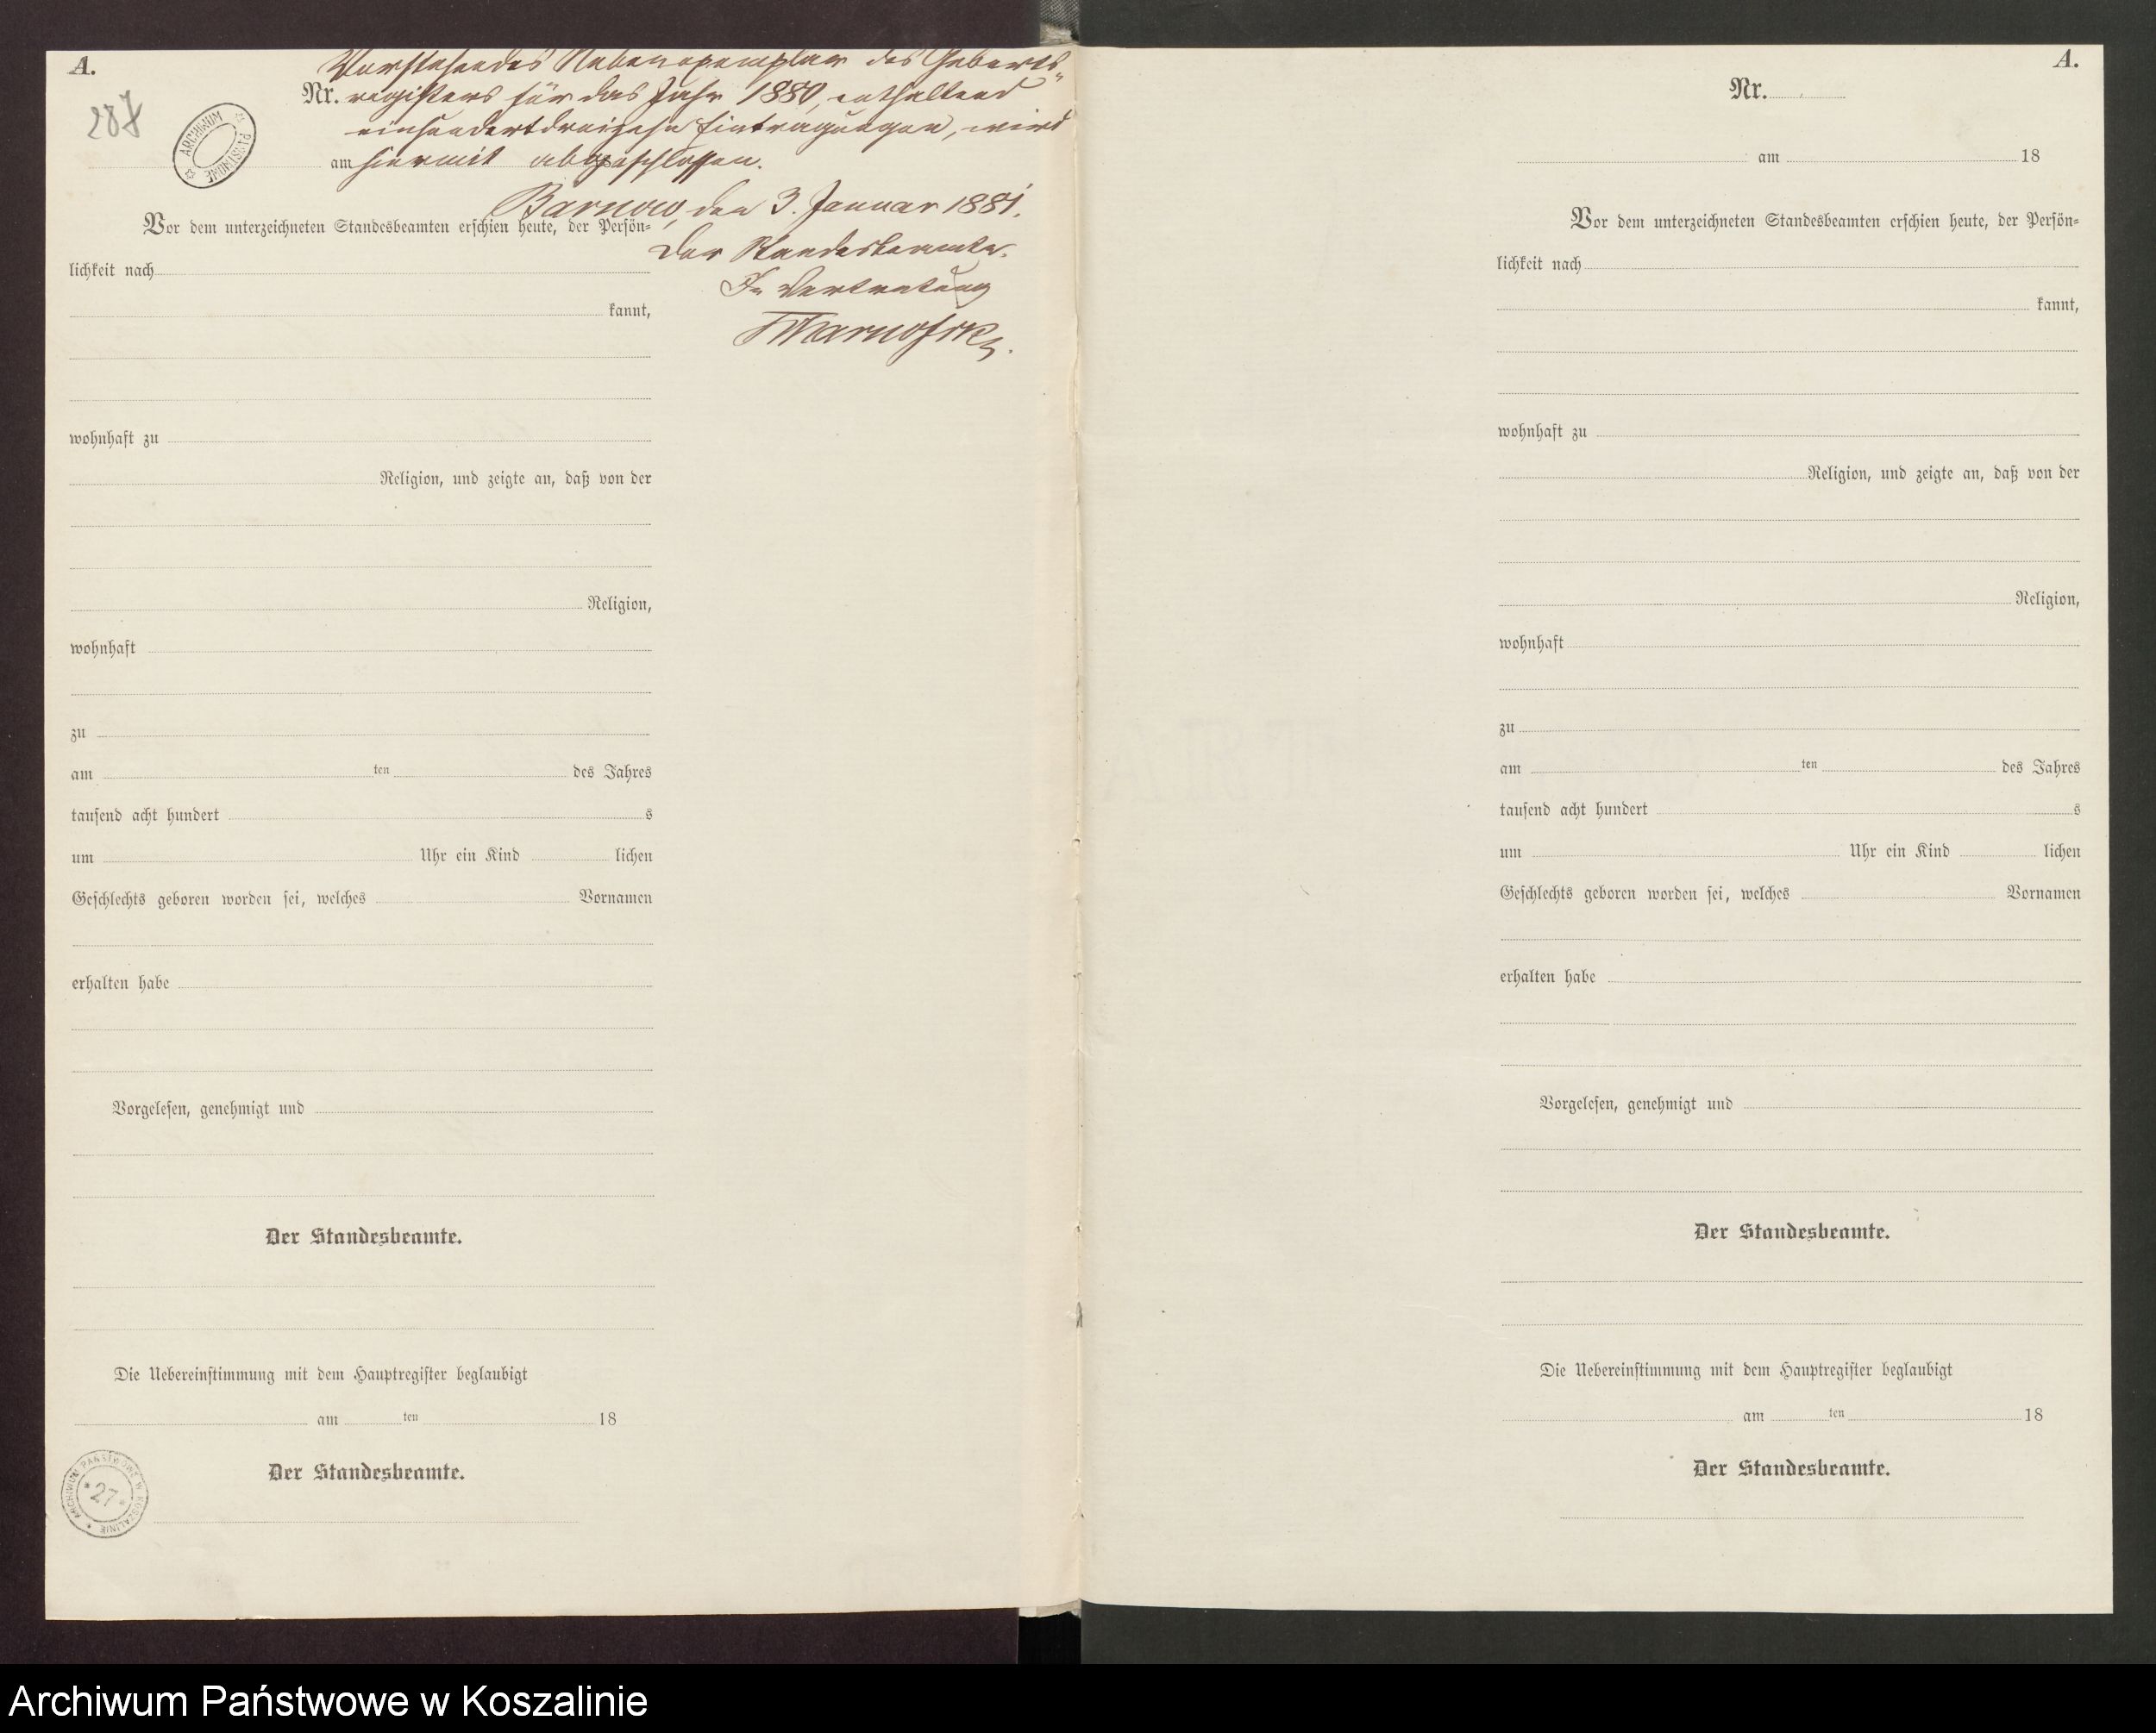 A.
Vorstehendes Nebenexemplar des Geburts-
Nr. registers für das Jahr 1880, enthaltend
einhundertdreizehn Eintragungen, wird
am hiermit abgeschlossen.
287
ARCHIWUM PAŃSTWOWE
Barnow, den 3. Januar 1881.
Vor dem unterzeichneten Standesbeamten erschien heute, der Persön-
Der Standesbeamte.
lichkeit nach
In Vertretung
kannt,
wohnhaft zu
Religion, und zeigte an, daß von der
Religion,
wohnhaft
zu
am ten des Jahres
tausend acht hundert s
um Uhr ein Kind lichen
Geschlechts geboren worden sei, welches Vornamen
erhalten habe
Vorgelesen, genehmigt und
Der Standesbeamte.
Die Uebereinstimmung mit dem Hauptregister beglaubigt
am ten 18
Der Standesbeamte.
ARCHIWUM PAŃSTWOWE W KOSZALINIE
27
A.
Nr.
am 18
Vor dem unterzeichneten Standesbeamten erschien heute, der Persön-
lichkeit nach
kannt,
wohnhaft zu
Religion, und zeigte an, daß von der
Religion,
wohnhaft
zu
am ten des Jahres
tausend acht hundert s
um Uhr ein Kind lichen
Geschlechts geboren worden sei, welches Vornamen
erhalten habe
Vorgelesen, genehmigt und
Der Standesbeamte.
Die Uebereinstimmung mit dem Hauptregister beglaubigt
am ten 18
Der Standesbeamte.
Archiwum Państwowe w Koszalinie